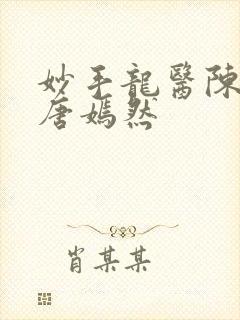 妙手龍醫陳
唐嫣然
肖某某